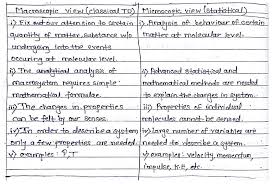 Macroscopic view (classical TD)
Microscopic view (statistical)
i) Fix out our attention to certain
quantity of matter, substance w/o
undergoing into the events
occuring at molecular level.
i) Analysis of behaviour of certain
matter at molecular level.
ii) The analytical analysis of
macrosystem requires simple
mathematical formulae.
ii) Advanced statistical and
mathematical methods are needed
to explain the changes in system.
iii) The changes in properties
can be felt by our senses.
iii) Properties of individual
molecules cannot be sensed.
iv) In order to describe a system
only a few properties are needed.
iv) large number of variables are
needed to describe a system.
v) examples: P, T
v) examples: velocity, momentum,
impulse, K.E, etc.